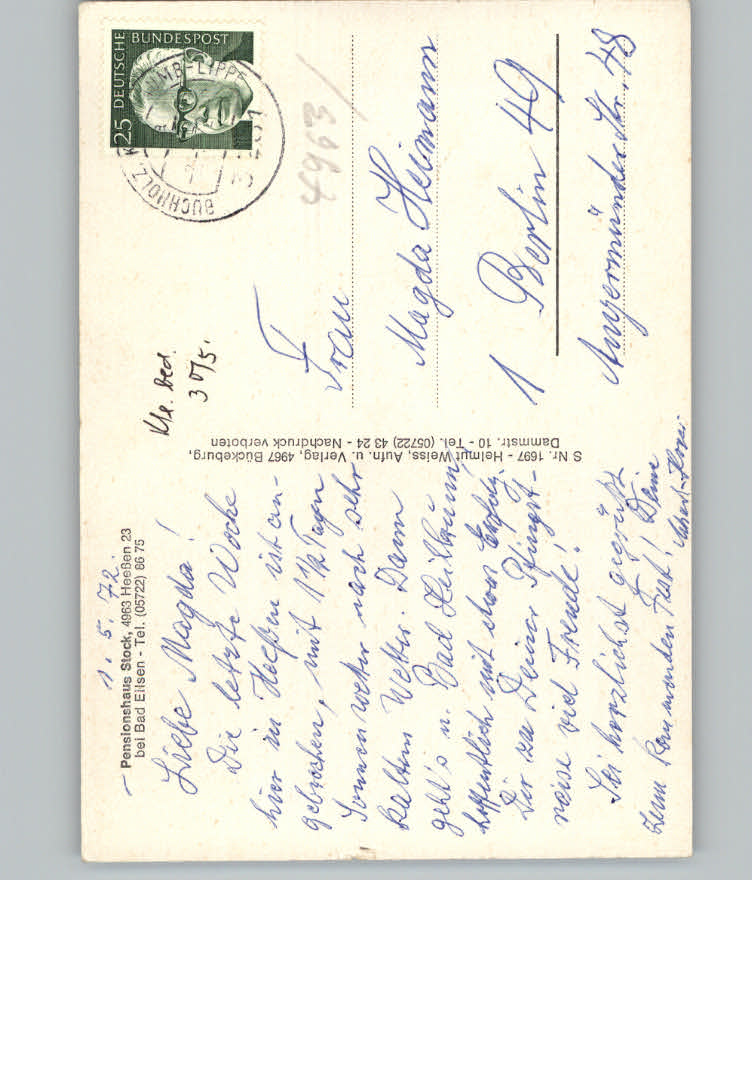 Pensionshaus Stock, 4963 Heeßen 23
bei Bad Eilsen - Tel. (05722) 86 75
1. 5. 72.
Liebe Magda!
Die letzte Woche
hier in Heeßen ist an-
gebrochen, mit 1 1/2 Tagen
Sonnenwetter nach sehr
kaltem Wetter. Dann
geht's n. Bad
hoffentlich mit etwas Erfolg.
Dir zu Deiner Pfingst-
reise viel Freude!
Sei herzlichst gegrüßt
zum kommenden Fest! Deine
S Nr. 1697 - Helmut Weiss, Aufn. u. Verlag, 4967 Bückeburg,
Dammstr. 10 - Tel. (05722) 43 24 - Nachdruck verboten
25 DEUTSCHE BUNDESPOST
BUCHHOLZ
4963/
Kte. bed.
30/5.
Frau
Magda Heimann
1 Berlin 49
Angermünder Str. 48